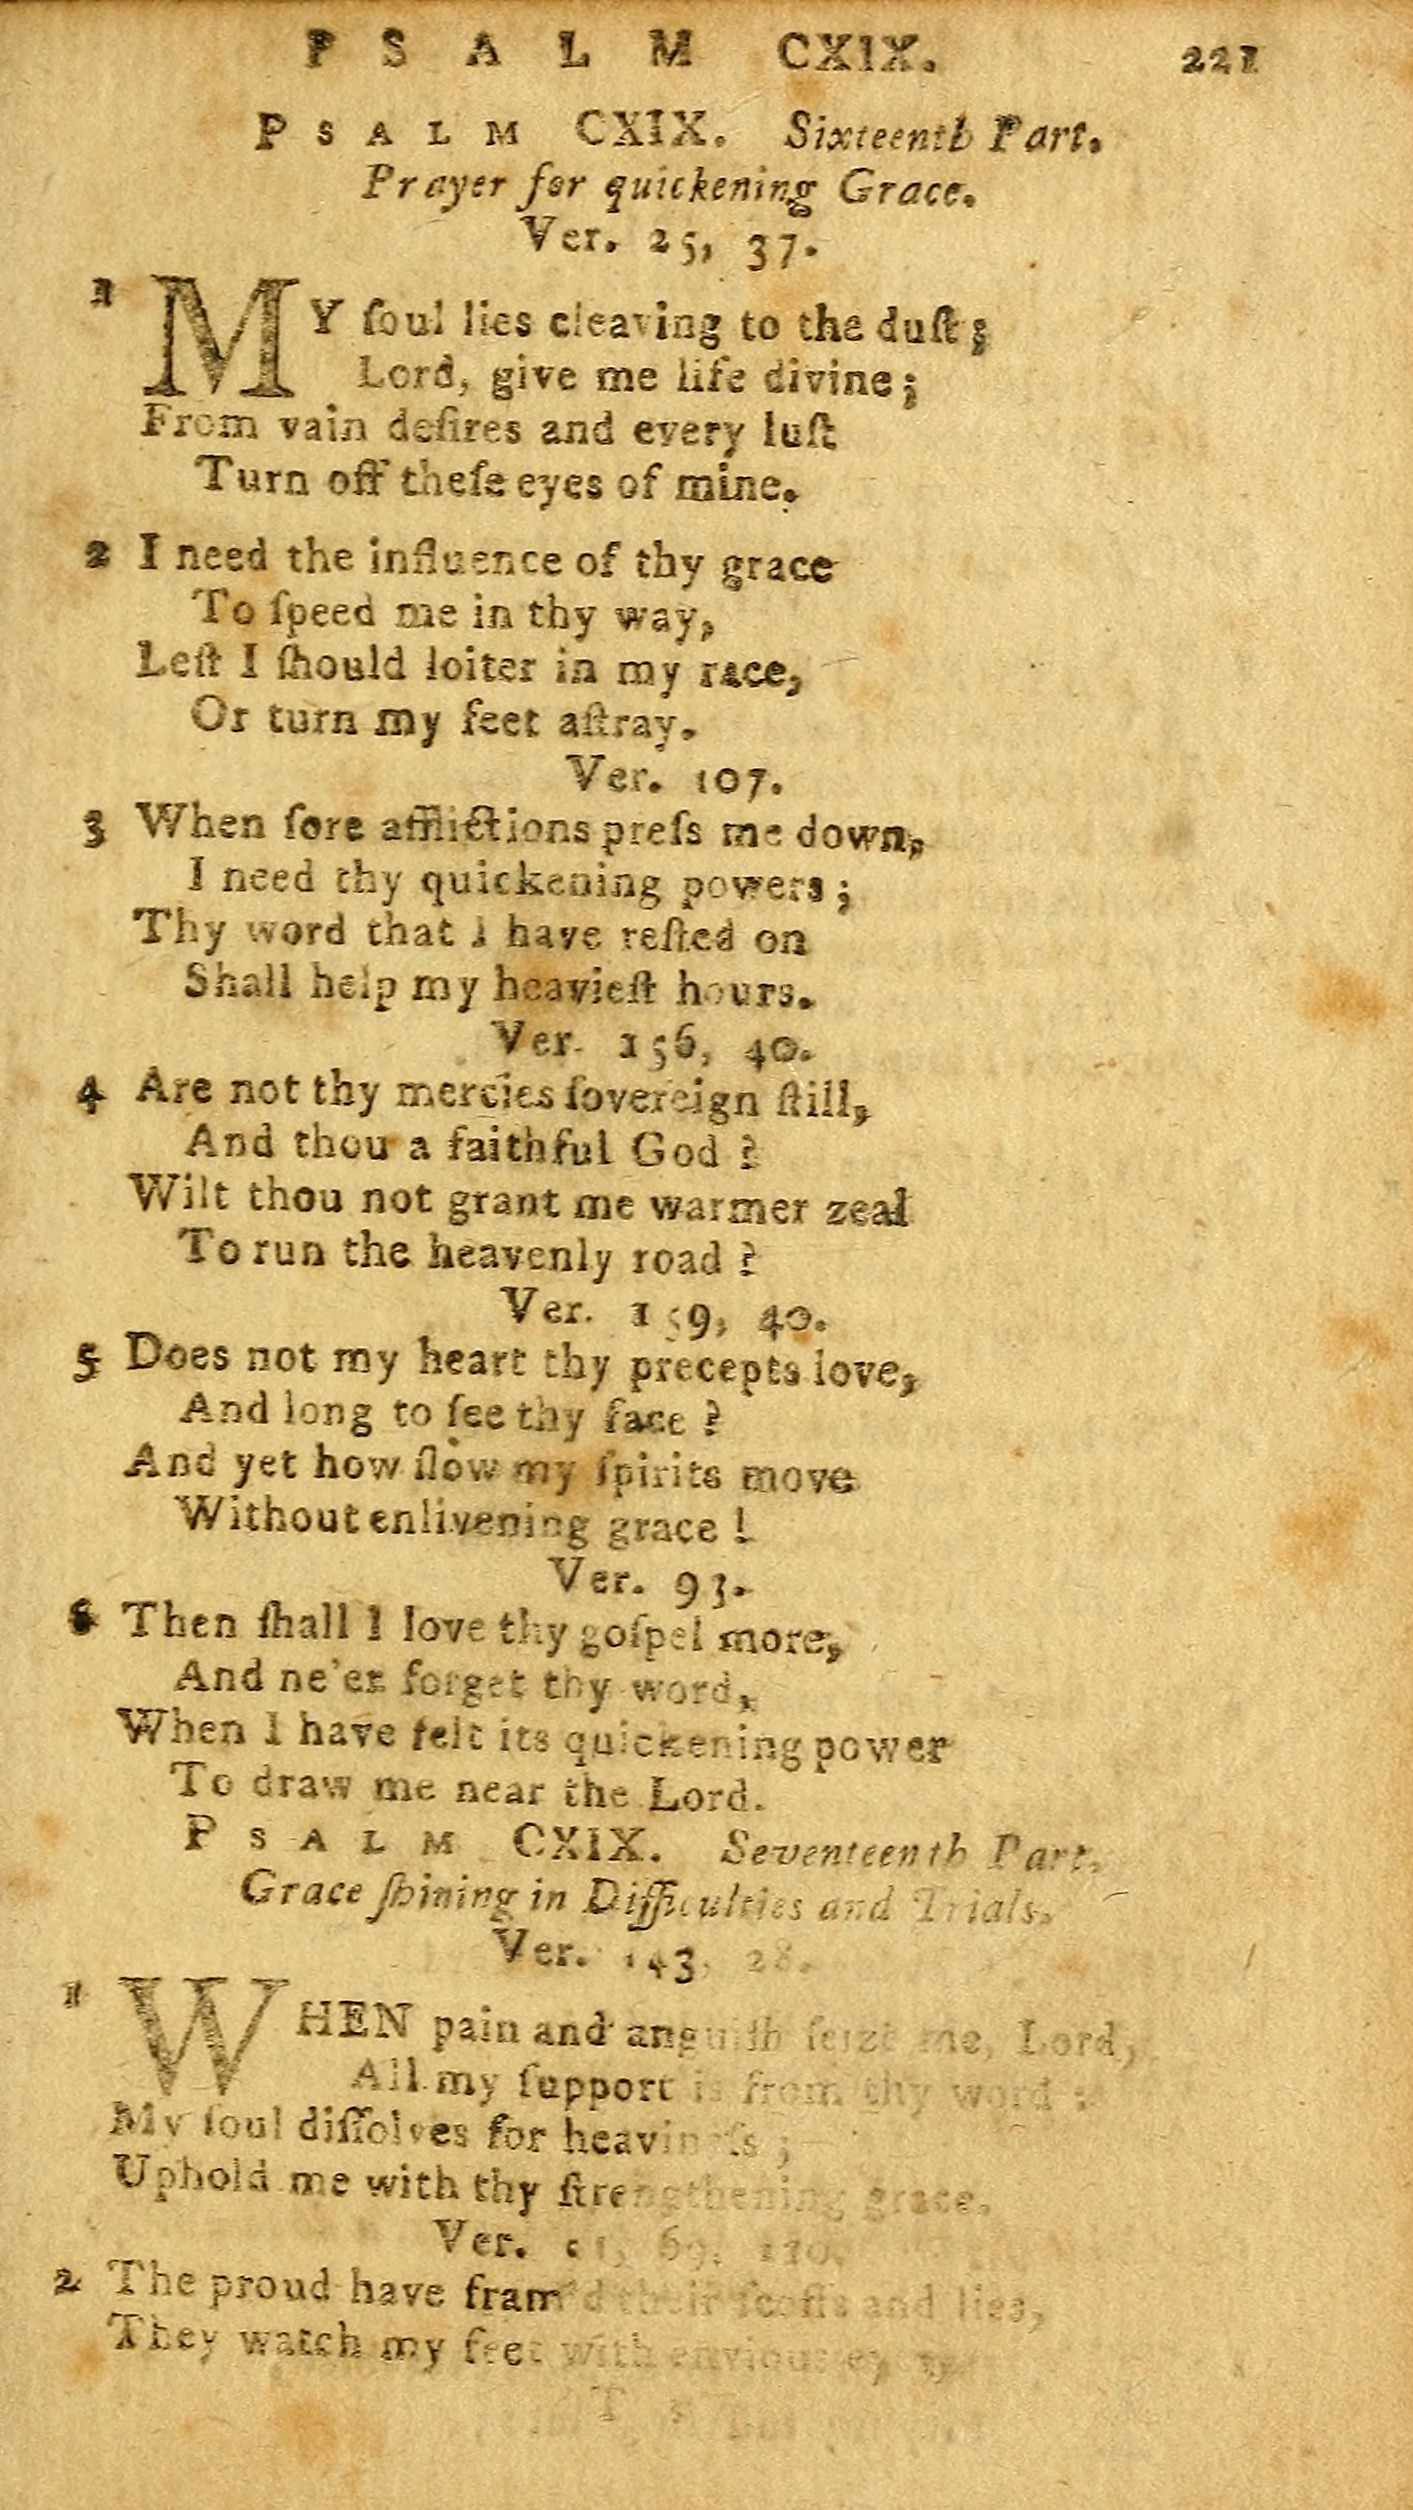 PSALM CXIX. 221
PSALM CXIX. Sixteenth Part.
Prayer for quickening Grace.
Ver. 25, 37.
1 MY ſoul lies cleaving to the duſt;
Lord, give me life divine;
From vain deſires and every luſt
Turn off theſe eyes of mine.
2 I need the influence of thy grace
To ſpeed me in thy way,
Leſt I ſhould loiter in my race,
Or turn my feet aſtray.
Ver. 107.
3 When ſore afflictions preſs me down,
I need thy quickening powers;
Thy word that I have reſted on
Shall help my heavieſt hours.
Ver. 156, 40.
4 Are not thy mercies ſovereign ſtill,
And thou a faithful God?
Wilt thou not grant me warmer zeal
To run the heavenly road?
Ver. 159, 40.
5 Does not my heart thy precepts love,
And long to ſee thy face?
And yet how ſlow my ſpirits move
Without enlivening grace!
Ver. 93.
6 Then ſhall I love thy goſpel more,
And ne'er forget thy word,
When I have felt its quickening power
To draw me near the Lord.
PSALM CXIX. Seventeenth Part.
Grace ſhining in Difficulties and Trials.
Ver. 143, 28.
1 WHEN pain and anguiſh ſeize me, Lord,
All my ſupport is from thy word:
My ſoul diſſolves for heavineſs;
Uphold me with thy ſtrengthening grace.
Ver. 69, 110.
2 The proud have fram'd their ſcoffs and lies,
They watch my feet with envious eyes,
T